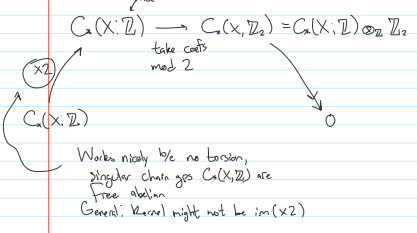 C*(X;ℤ) → C*(X,ℤ₂) = C*(X;ℤ) ⊗_ℤ ℤ₂
take coefs
mod 2
×2
C*(X;ℤ)
0
Works nicely b/c no torsion,
singular chain gps C*(X,ℤ) are
free abelian
General: kernel might not be im(×2)